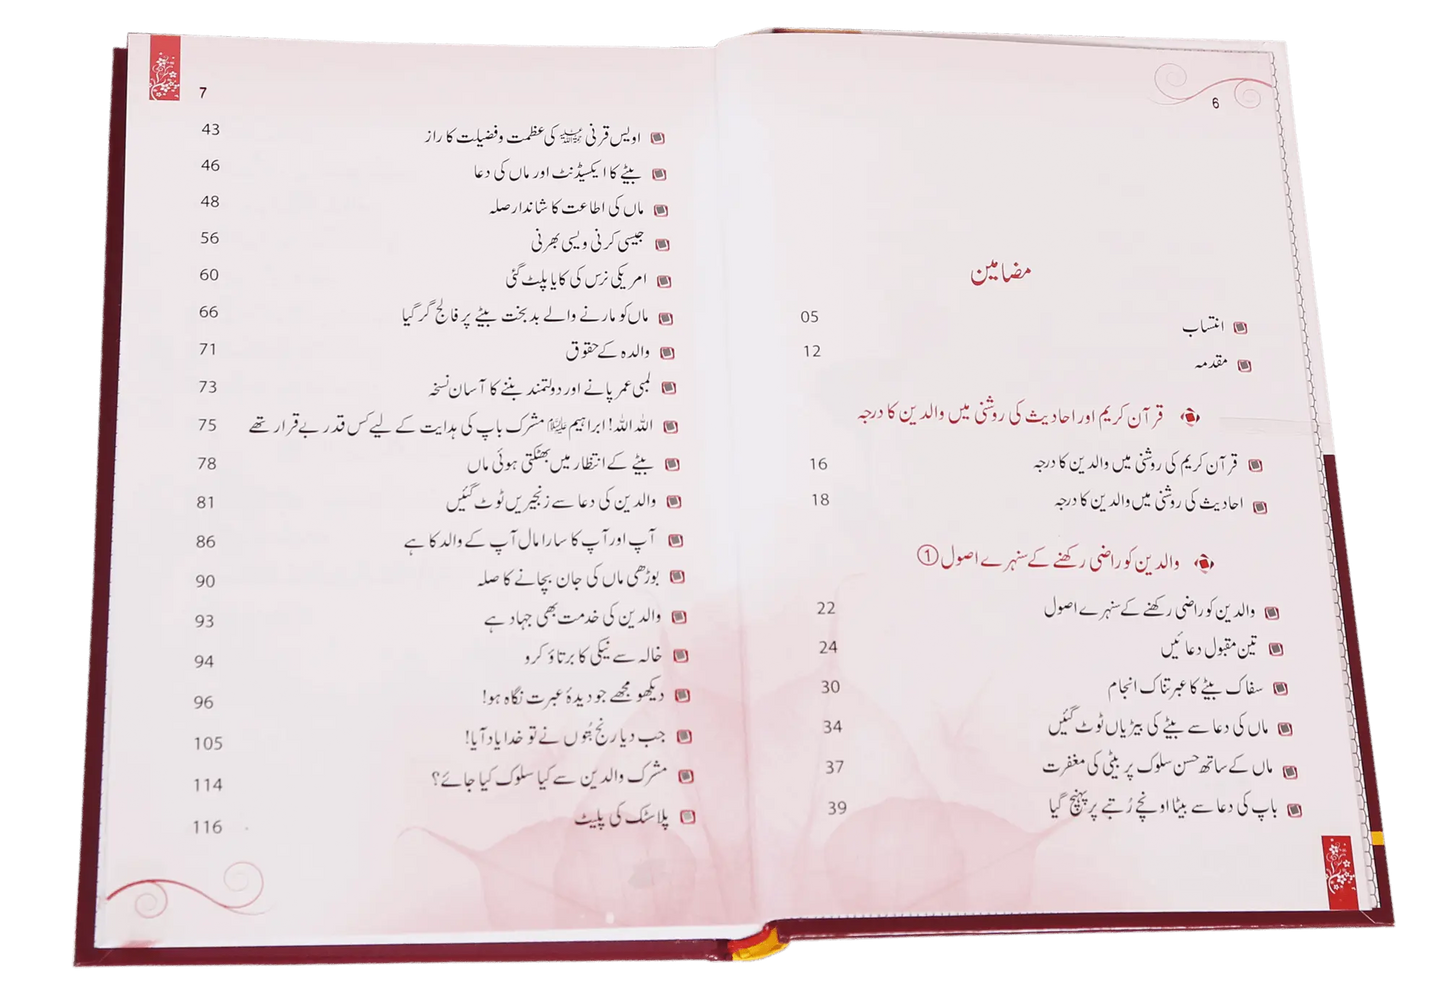 6
مضامین
انتساب 05
مقدمہ 12
قرآن کریم اور احادیث کی روشنی میں والدین کا درجہ
قرآن کریم کی روشنی میں والدین کا درجہ 16
احادیث کی روشنی میں والدین کا درجہ 18
والدین کو راضی رکھنے کے سنہرے اصول ①
والدین کو راضی رکھنے کے سنہرے اصول 22
تین مقبول دعائیں 24
سفاک بیٹے کا عبرتناک انجام 30
ماں کی دعا سے بیٹے کی بیڑیاں ٹوٹ گئیں 34
ماں کے ساتھ حسن سلوک پر بیٹی کی مغفرت 37
باپ کی دعا سے بیٹا اونچے رُتبے پر پہنچ گیا 39
7
اویس قرنی رحمہ اللہ کی عظمت و فضیلت کا راز 43
بیٹے کا ایکسیڈنٹ اور ماں کی دعا 46
ماں کی اطاعت کا شاندار صلہ 48
جیسی کرنی ویسی بھرنی 56
امریکی نرس کی کایا پلٹ گئی 60
ماں کو مارنے والے بدبخت بیٹے پر فالج گر گیا 66
والدہ کے حقوق 71
لمبی عمر پانے اور دولتمند بننے کا آسان نسخہ 73
اللہ اللہ! ابراہیم علیہ السلام مشرک باپ کی ہدایت کے لیے کس قدر بے قرار تھے 75
بیٹے کے انتظار میں بھٹکتی ہوئی ماں 78
والدین کی دعا سے زنجیریں ٹوٹ گئیں 81
آپ اور آپ کا سارا مال آپ کے والد کا ہے 86
بوڑھی ماں کی جان بچانے کا صلہ 90
والدین کی خدمت بھی جہاد ہے 93
خالہ سے نیکی کا برتاؤ کرو 94
دیکھو مجھے جو دیدۂ عبرت نگاہ ہو! 96
جب دیا رنج بُتوں نے تو خدا یاد آیا! 105
مشرک والدین سے کیا سلوک کیا جائے؟ 114
پلاسٹک کی پلیٹ 116